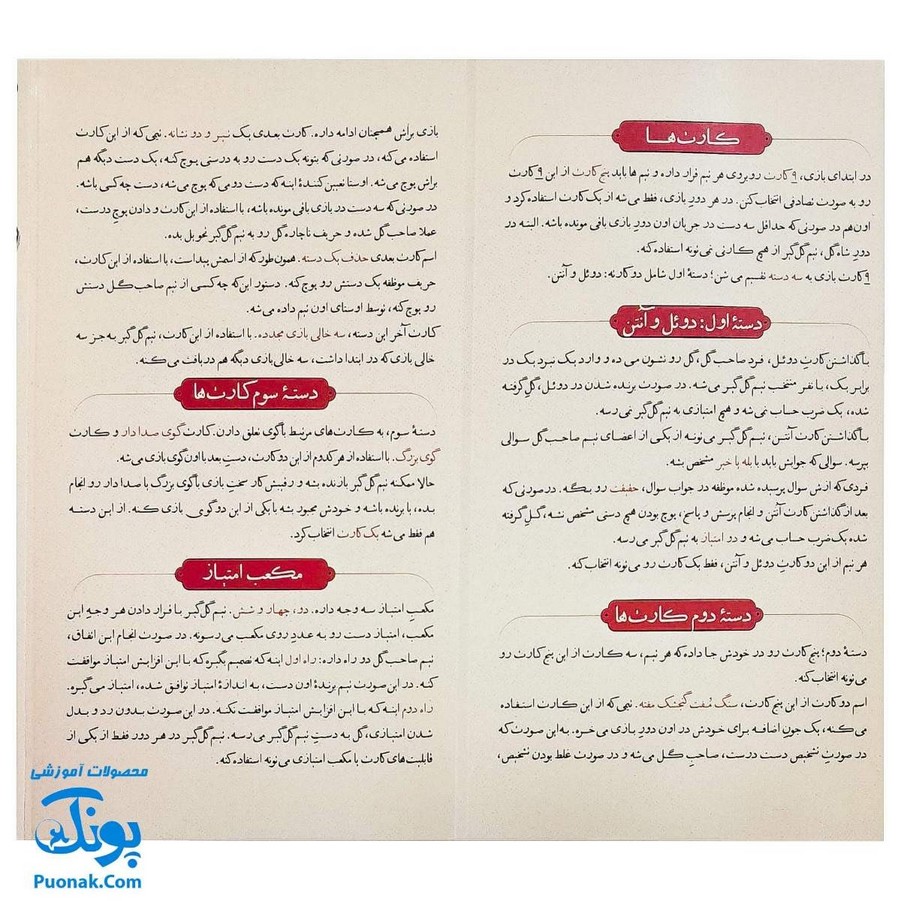 کارت‌هـا
در ابتدای بازی، ۹ کارت روبروی هر تیم قرار داره و تیم ها باید پنج کارت از این ۹ کارت
رو به صورت تصادفی انتخاب کنن. در هر دورِ بازی، فقط می‌شه از یک کارت استفاده کرد و
اون‌هم در صورتی که حداقل سه دست در جریان اون دورِ بازی باقی مونده باشه. البته در
دورِ شاه گل، تیم گل‌گیر از هیچ کارتی نمی‌تونه استفاده کنه.
۹ کارت بازی به سه دسته تقسیم می شن؛ دستهٔ اول شامل دو کارته: دوئل و آنتن.
دستهٔ اول: دوئل و آنتن
با گذاشتن کارتِ دوئل، فرد صاحب گل، گل رو نشون می ده و وارد یک نبرد یک در
برابر یک، با نفر منتخب تیم گل‌گیر می‌شه. در صورت برنده شدن در دوئل، گلِ گرفته
شده، یک ضرب حساب نمی شه و هیچ امتیازی به تیم گل‌گیر نمی رسه.
با گذاشتن کارت آنتـن، تیـم گل‌گیر می‌تونـه از یکی از اعضای تیـم صاحب گل سوالی
بپرسه. سوالی که جوابش باید با بله یا خیر مشخص بشه.
فردی که ازش سوال پرسیده شده موظفه در جواب سوال، حقیقت رو بگه. در صورتی که
بعد از گذاشتن کارت آنتن و انجام پرسش و پاسخ، پوچ بودن هیچ دستی مشخص نشه، گلِ گرفته
شده یک ضرب حساب می شه و دو امتیاز به تیم گل‌گیر می رسه.
هر تیم از این دو کارتِ دوئل و آنتن، فقط یک کارت رو می تونه انتخاب کنه.
دستهٔ دوم کارت‌ها
دستهٔ دوم؛ پنج کارت رو در خودش جا داده که هر تیم، سه کارت از این پنج کارت رو
می تونه انتخاب کنه.
اسم دو کارت از این پنج کارت، سنگ مُفت گنجشک مفته. تیمی که از این کارت استفاده
می‌کنه، یک جونِ اضافه برای خودش در اون دورِ بازی می خره. به این صورت که
در صورتِ تشخیص دست درست، صاحبِ گل می شه و در صورت غلط بودن تشخیص،
بازی براش همچنان ادامه داره. کارت بعدی یک تیـر و دو نشانه. تیمی که از این کارت
استفاده می کنه، در صورتی که بتونه یک دست رو به درستی پوچ کنه، یک دست دیگه هم
براش پوچ می شه. اوستا تعیین کنندهٔ اینه که دست دومی که پوچ می‌شه، دست چه کسی باشه.
در صورتی که سه دست در بازی باقی مونده باشه، با استفاده از این کارت و دادن پوچِ درست،
عملا صاحب گل شده و حریف ناچاره گل رو به تیم گل‌گیر تحویل بده.
اسم کارت بعدی حذف یک دسته. همون‌طور که از اسمش پیداست، با استفاده از این کارت،
حریف موظفه یک دستش رو پوچ کنه. دستورِ این‌که چه کسی از تیم صاحب گل دستش
رو پوچ کنه، توسط اوستای اون تیم داده می شه.
کارت آخر این دسته، سه خالی بازی مجدده. با استفاده از این کارت، تیم گل‌گیر به جز سه
خالی بازی که در ابتدا داشت، سه خالی بازی دیگه هم دریافت می کنه.
دستهٔ سوم کارت‌ها
دستهٔ سوم، به کارت‌های مرتبط با گوی تعلق دارن. کارت گوی صدا دار و کارت
گوی بزرگ. با استفاده از هر کدوم از این دو کارت، دستِ بعد با اون گوی بازی می‌شه.
حالا ممکنه تیم گل‌گیر بازنده بشه و رقیبش کار سختِ بازی با گوی بزرگ یا صدا دار رو انجام
بده، یا برنده باشه و خودش مجبور بشه با یکی از این دو گوی بازی کنه. از این دسته
هم فقط می‌شه یک کارت انتخاب کرد.
مکعب امتیاز
مکعب امتیاز سه وجه داره. دو، چهار و شش. تیم گل‌گیر با قرار دادن هر وجهِ این
مکعب، امتیاز دست رو به عددِ روی مکعب می رسونه. در صورت انجام این اتفاق،
تیم صاحب گل دو راه داره: راه اول اینه که تصمیم بگیره که با این افزایش امتیاز موافقت
کنه. در این صورت تیم برندهٔ اون دست، به اندازهٔ امتیاز توافق شده، امتیاز می‌گیره.
راه دوم اینه که با این افزایش امتیاز موافقت نکنه. در این صورت بدون رد و بدل
شدن امتیازی، گل به دستِ تیم گل‌گیر می رسه. تیم گل‌گیر در هر دور فقط از یکی از
قابلیت‌های کارت یا مکعب امتیازی می تونه استفاده کنه.
محصولات آموزشی
پونک
Puonak.Com